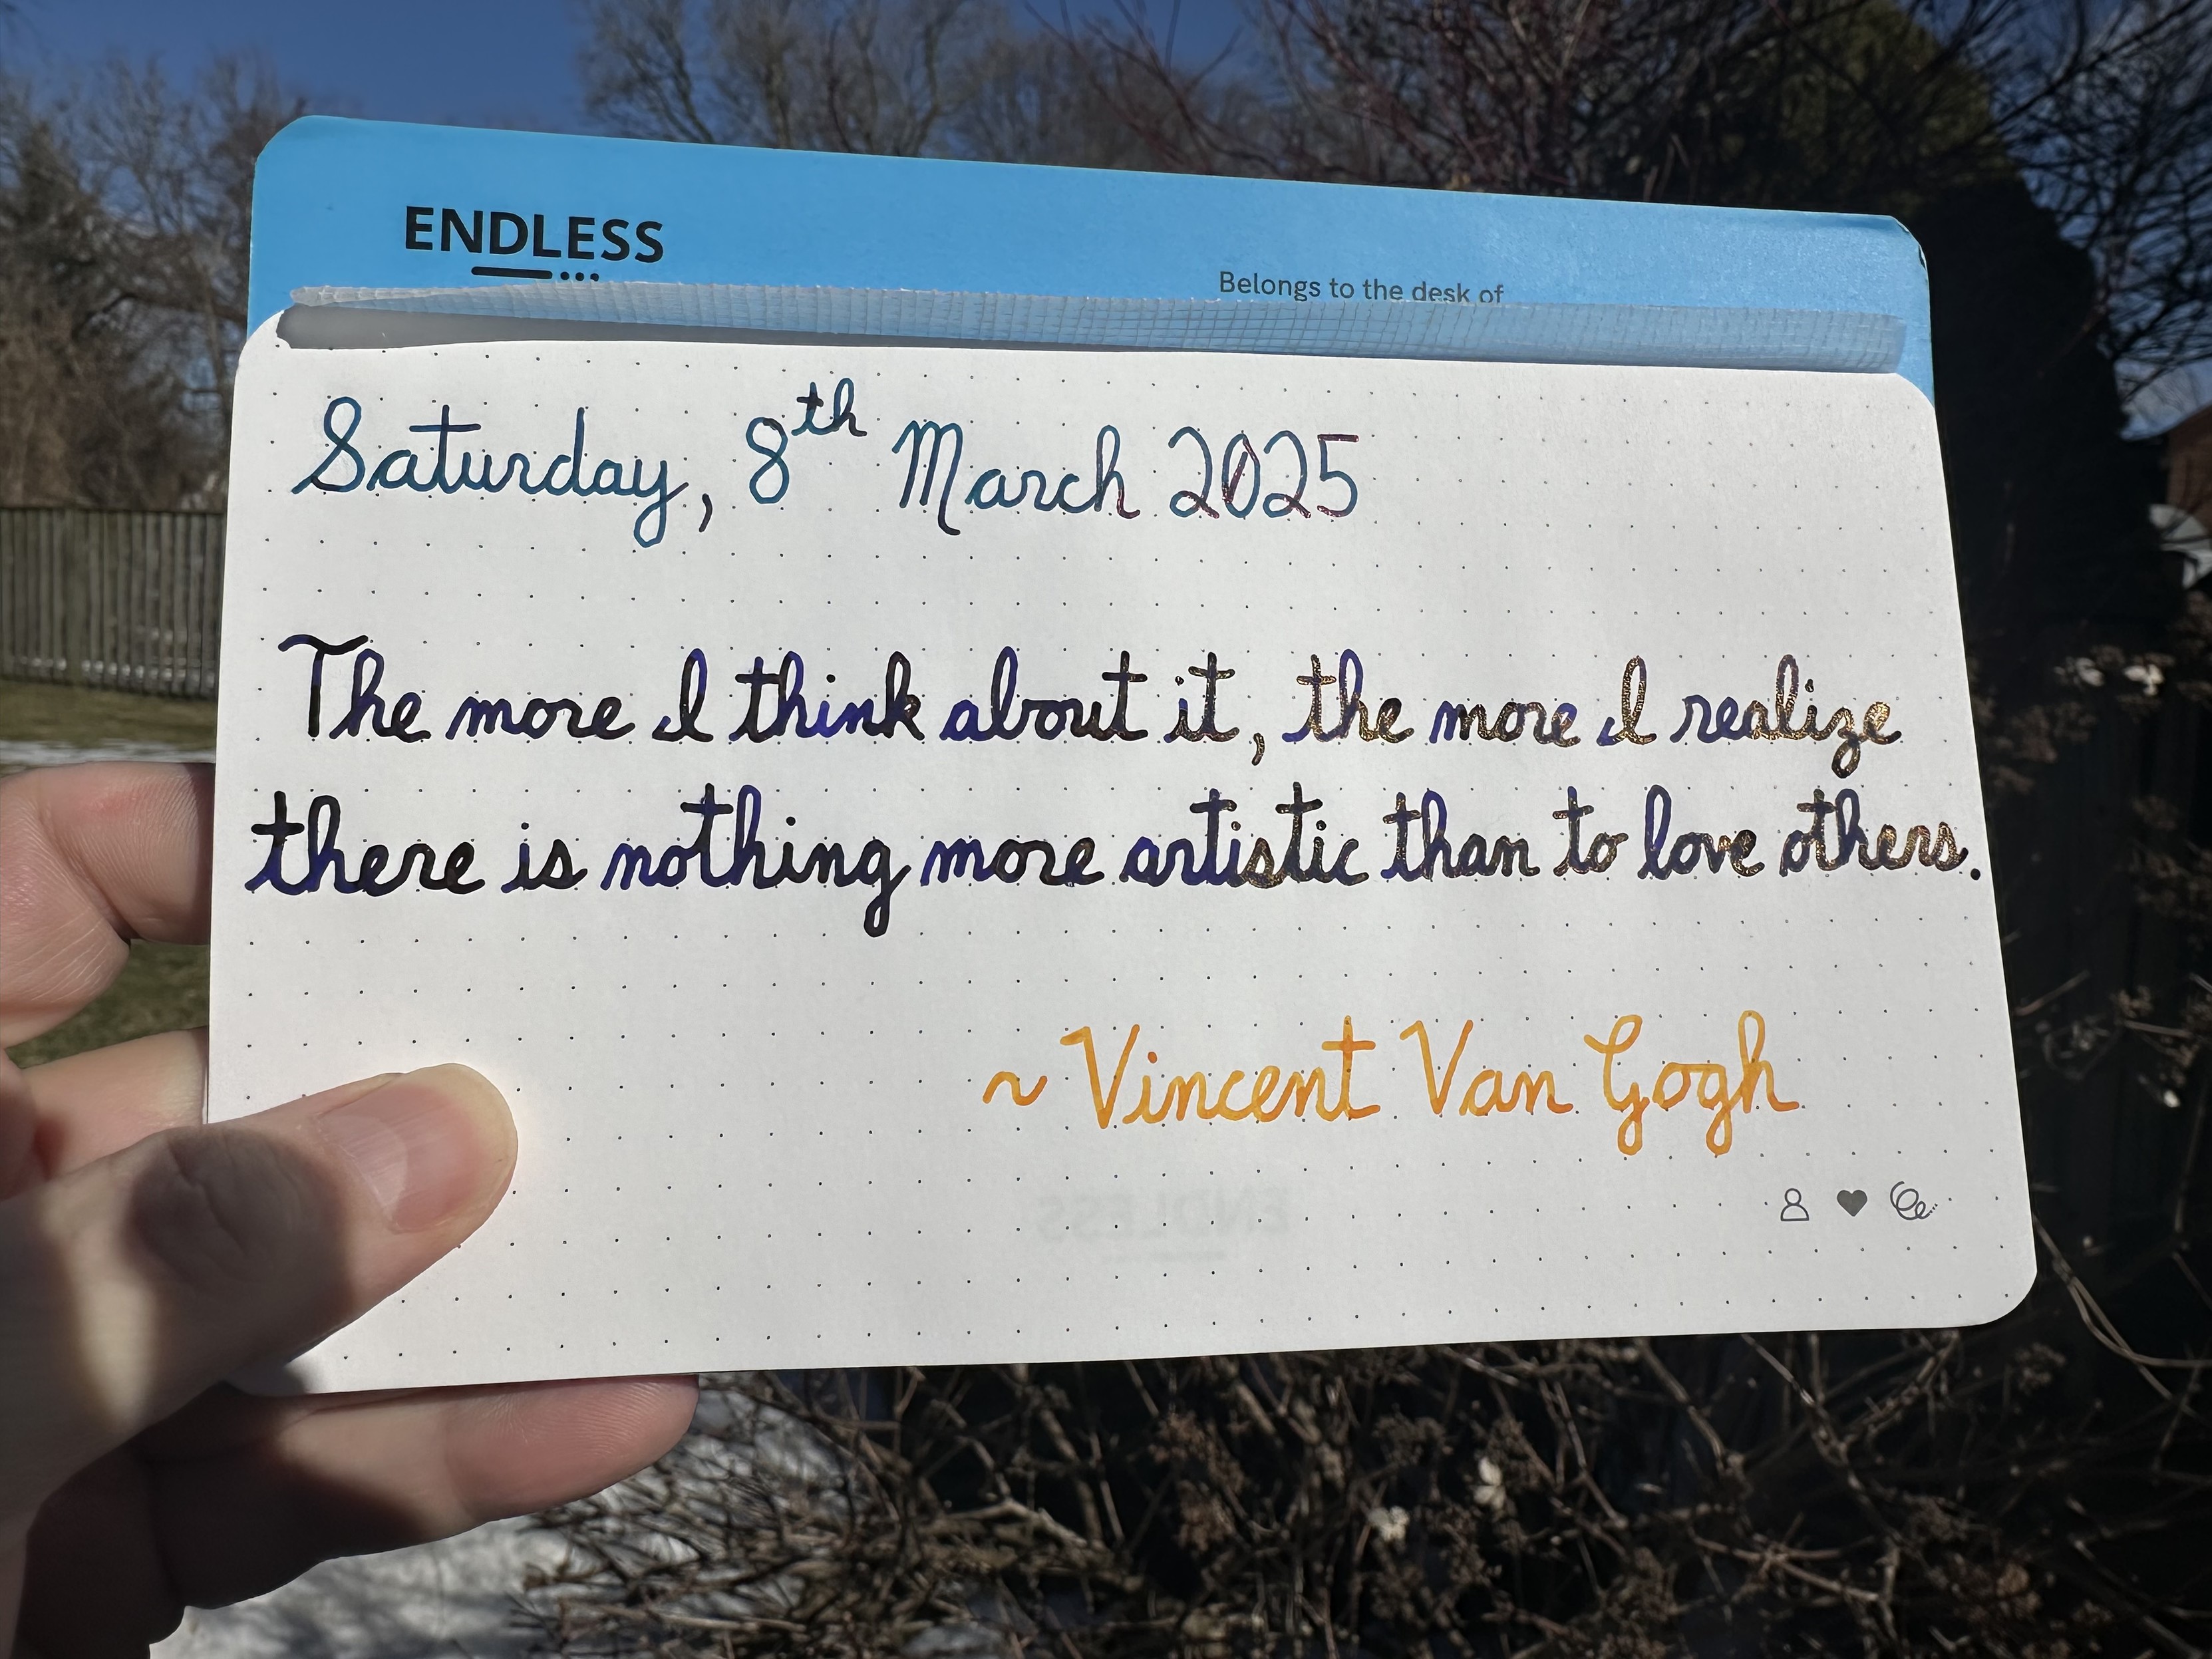 ENDLESS
Belongs to the desk of
Saturday, 8th March 2025
The more I think about it, the more I realize
there is nothing more artistic than to love others.
~ Vincent Van Gogh
ENDLESS